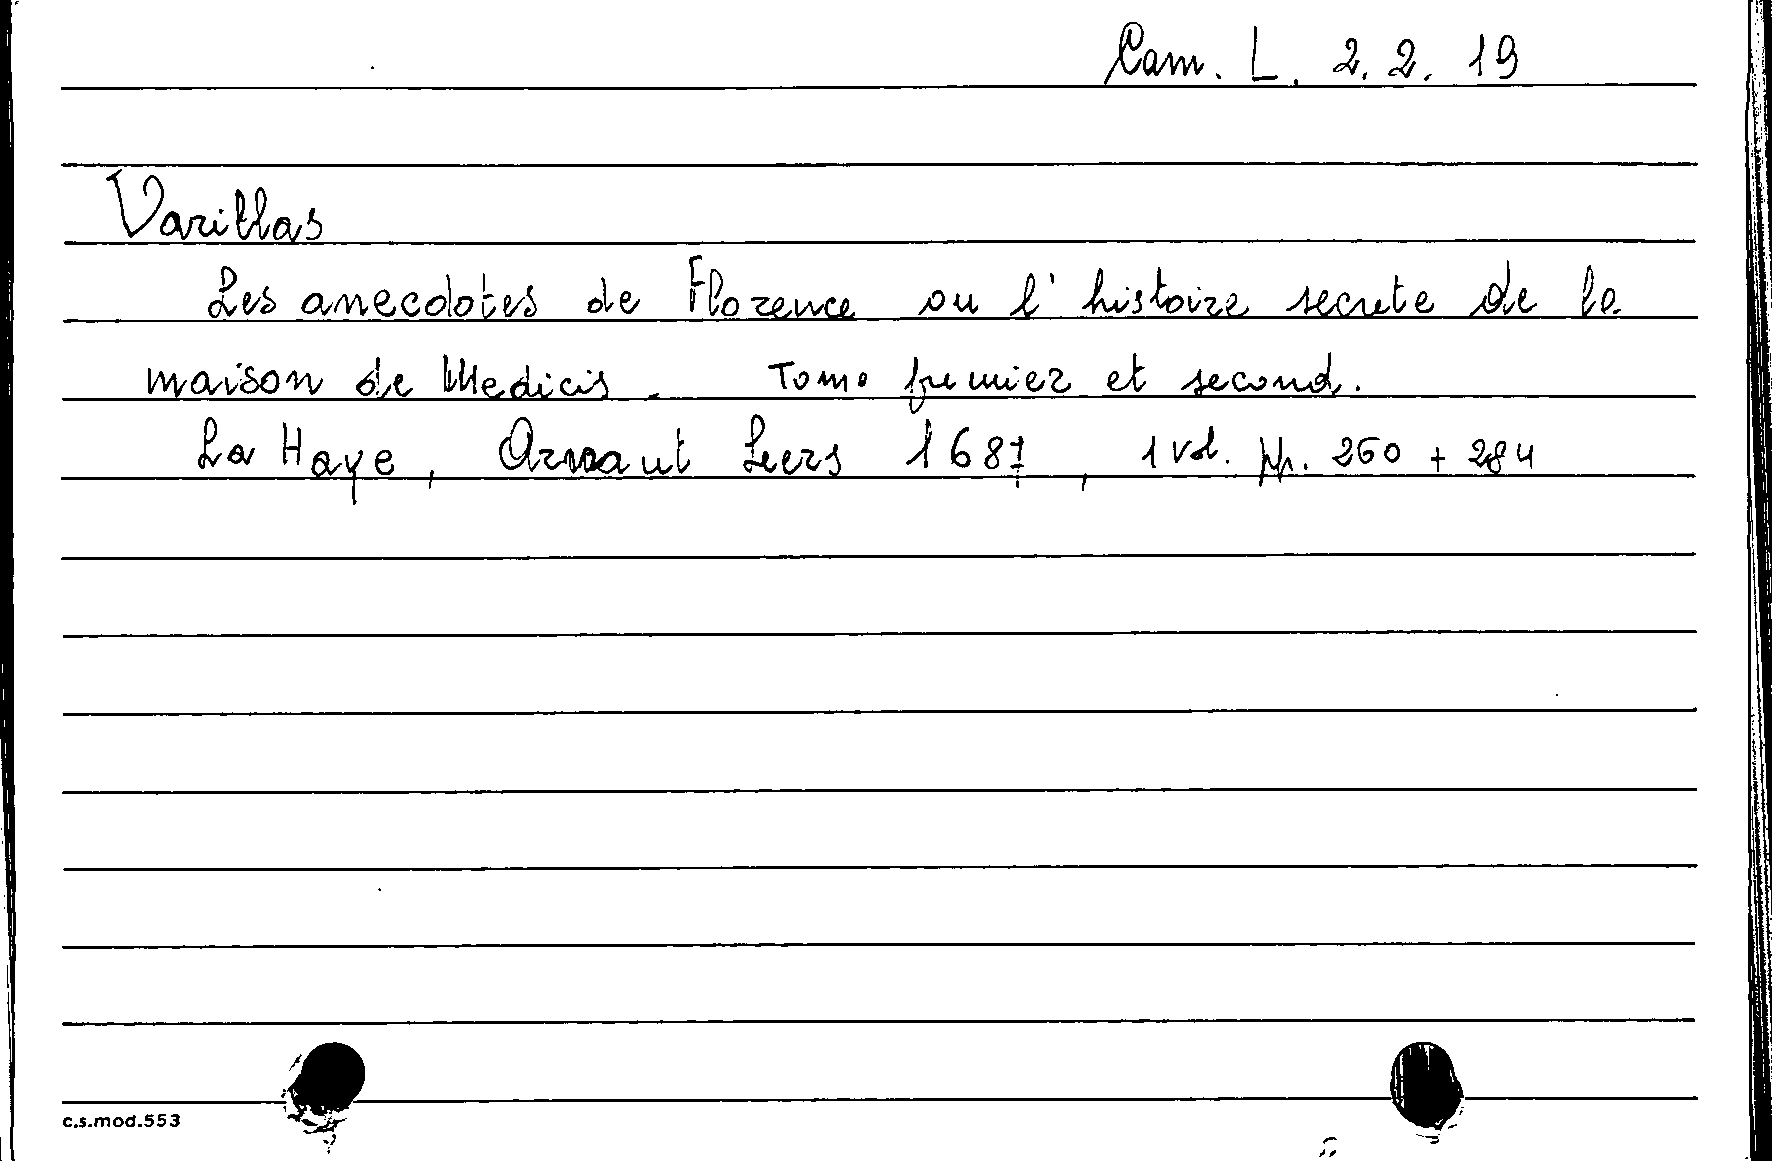 Cam. L. 2. 2. 19
Varillas
Les anecdotes de Florence ou l'histoire secrete de la
maison de Medicis. Tomo premier et second.
La Haye, Arnaut Leers 1687, 1 vol. pp. 260 + 284
c.s.mod.553